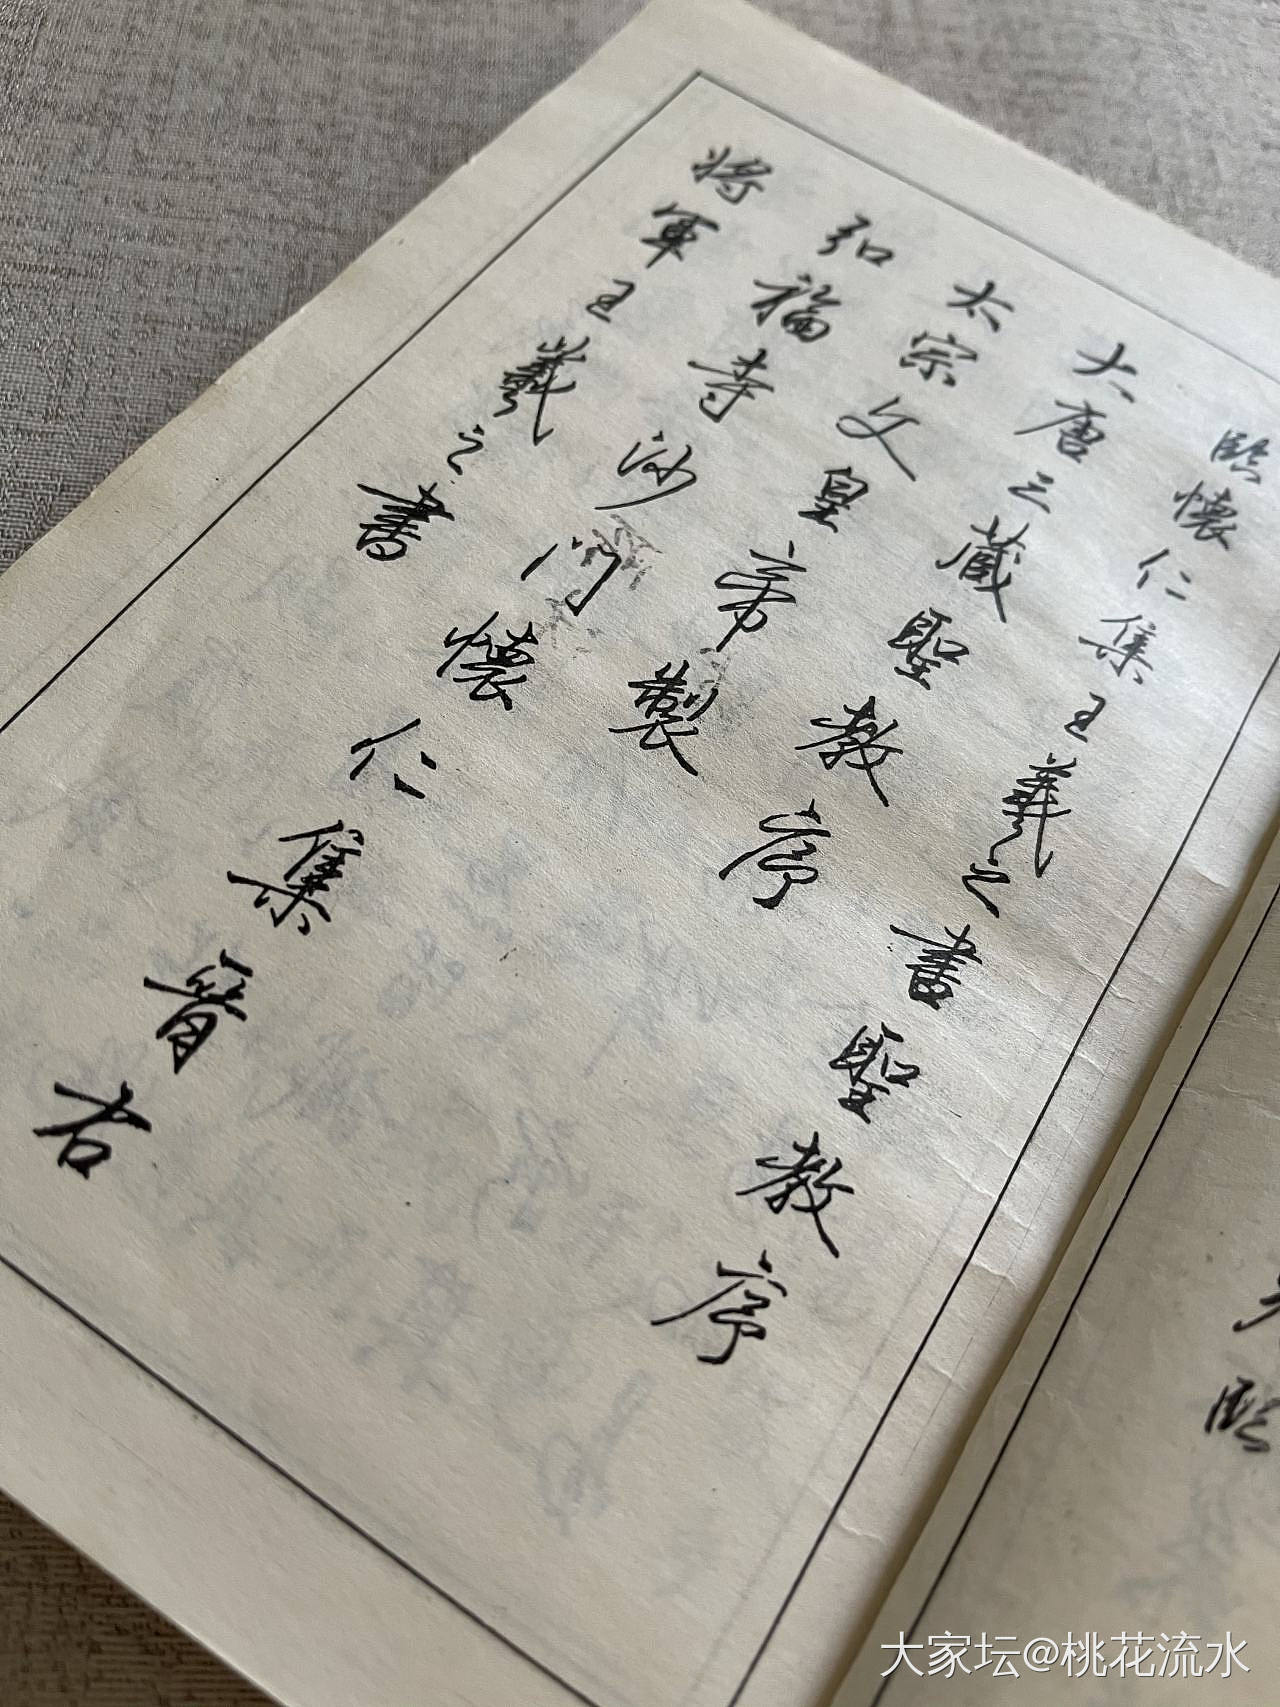 臨
臨懷仁集王羲之書聖教序
大唐三藏聖教序
太宗文皇帝製
弘福寺沙門懷仁集晉右
將軍王羲之書
大家坛@桃花流水